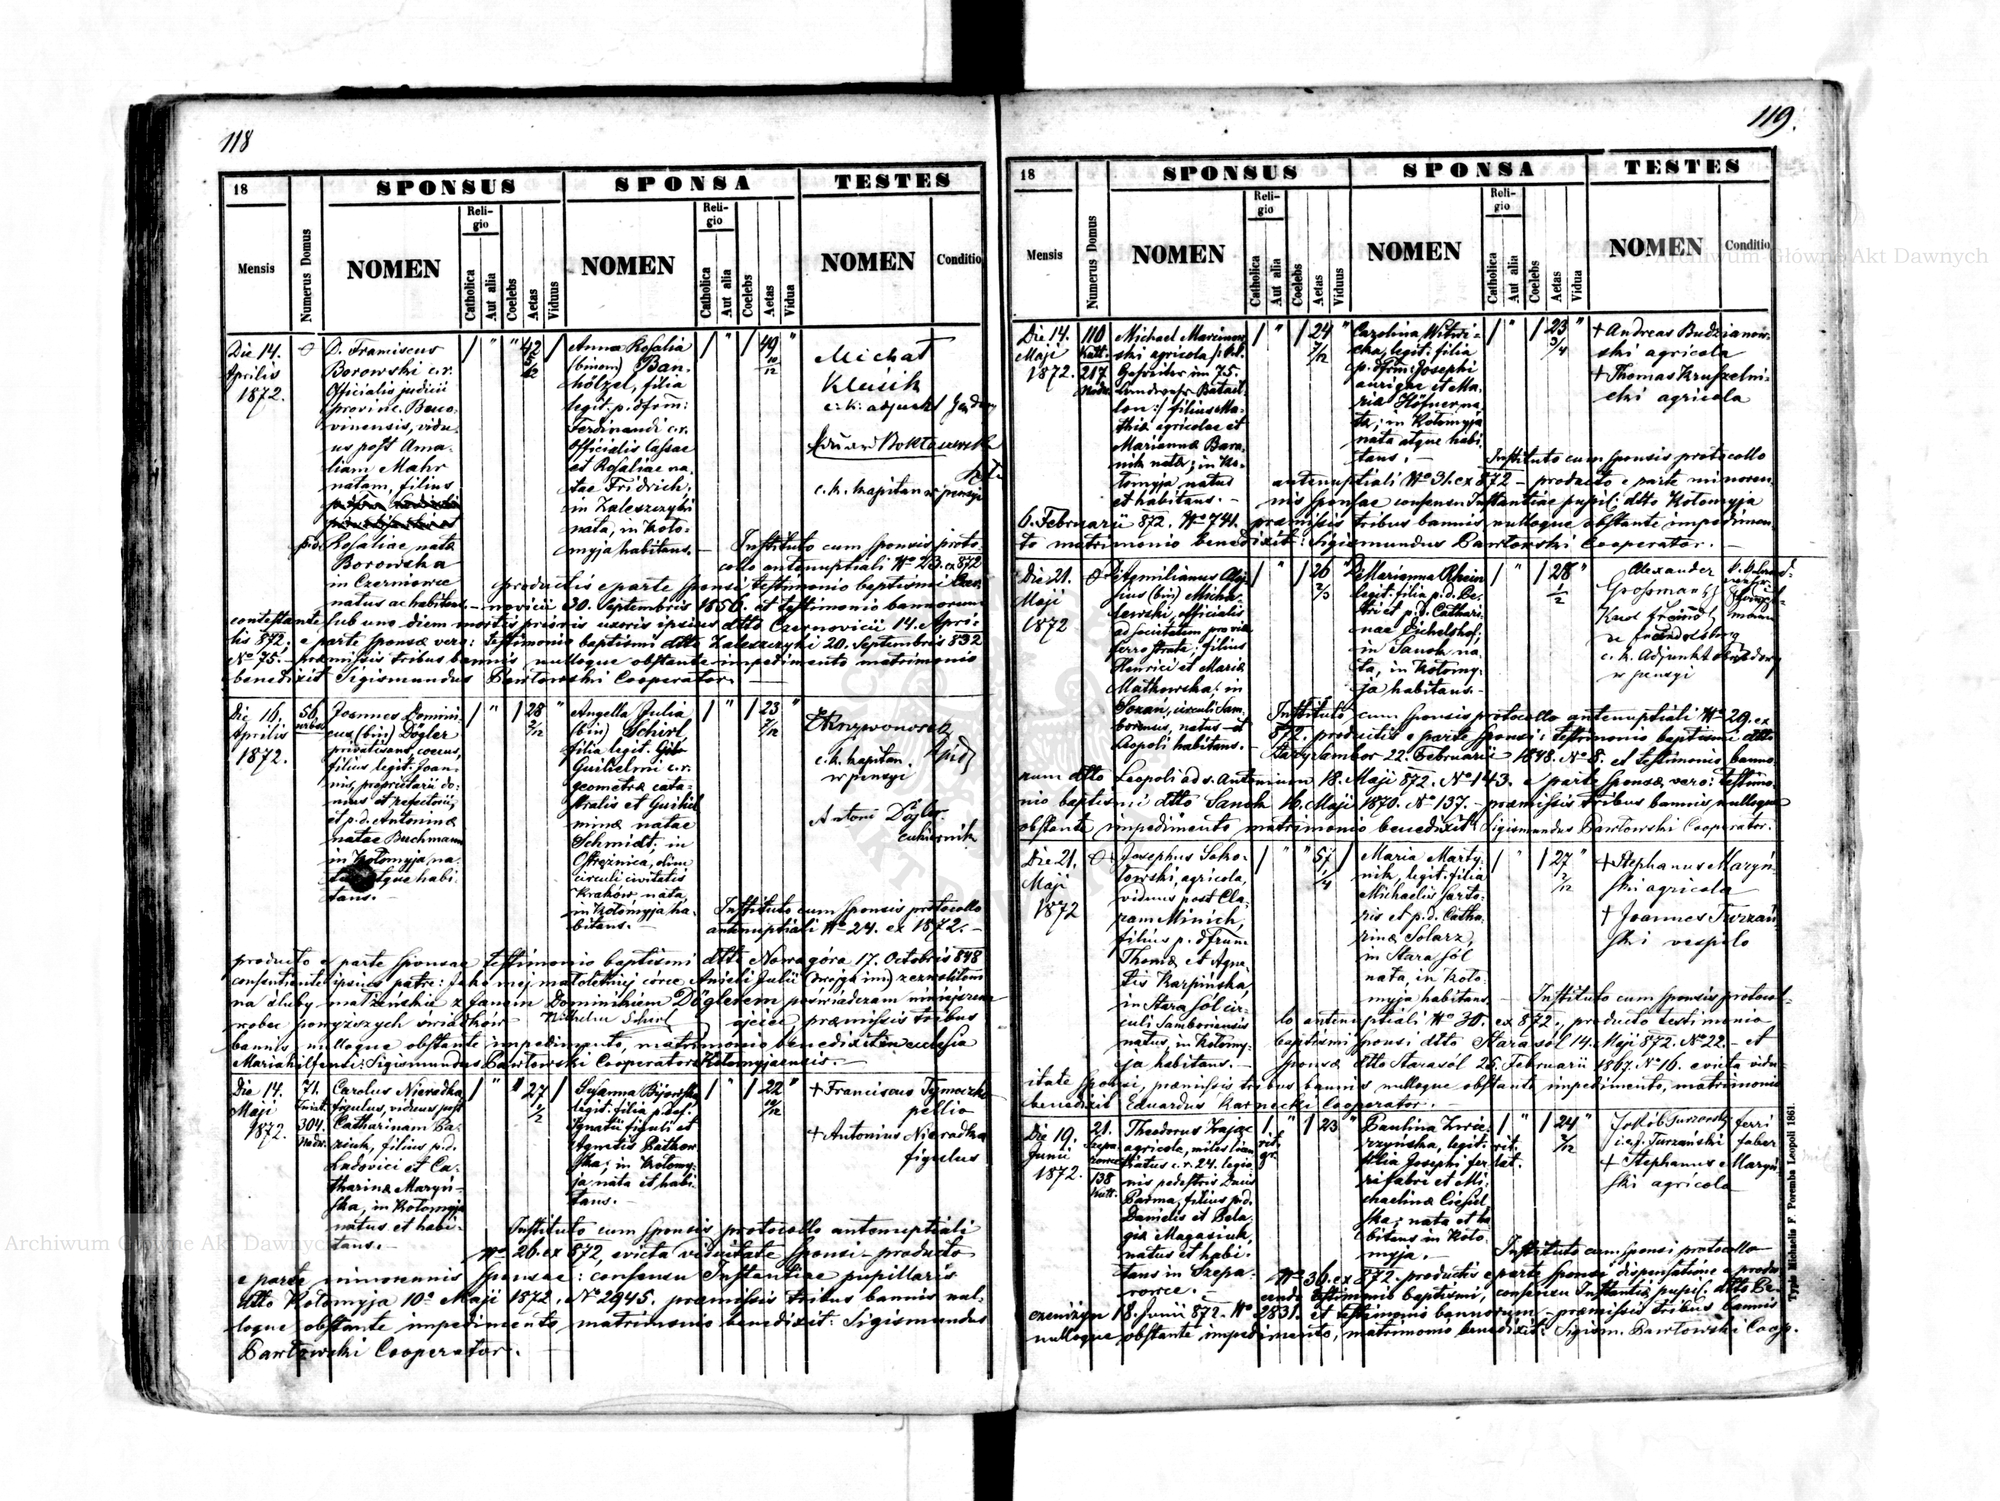 118
18
SPONSUS
SPONSA
TESTES
Mensis
Numerus Domus
NOMEN
Religio
Catholica
Aut alia
Coelebs
Aetas
Viduus
NOMEN
Religio
Catholica
Aut alia
Coelebs
Aetas
Vidua
NOMEN
Conditio
Die 14.
Aprilis
1872.
D. Franciscus
Borowski c.r.
Officialis judicii
provinc. Buco-
vinensis, vidu-
us post Ama-
liam Mahr
natam, filius
Rosaliae nata
Borowska
in Czerniowce
natus ac habitans.
42
Anna Rosalia
(binom) Ban-
hölzel, filia
legit. p. dftm:
Ferdinandi c.r.
Officialis Cassae
et Rosaliae na-
tae Fridrich,
in Zaleszczyki
nata, in Koło-
myja habitans.
49
Michał
c. k. adjunkt
c. k. kapitan w pensyi
Instituto cum sponsis proto-
collo antenuptiali No 23. ex 872
productis e parte sponsi testimonio baptismi Czer-
novicii 30. Septembris 1856. et testimonio bannorum
contestante sub uno diem mortis prioris uxoris ipsius dtto Czernovicii 14. Apri-
lis 872, e parte sponsae vero: testimonio baptismi dtto Zaleszczyki 20. Septembris 832
No 75. – praemissis tribus bannis nulloque obstante impedimento matrimonio
benedixit Sigismundus Pawłowski Cooperator.
Die 16.
Aprilis
1872.
56
urba
Joannes Domini-
cus (bin) Dögler
privatisans, coecus,
filius legit. Joan-
nis, proprietarii do-
mus et pistorii,
et p.d. Antoninae
natae Buchmann
in Kołomyja na-
tus atque habi-
tans.
28
2/12
Angella Julia
(bin) Schirl,
filia legit.
Guilielmi c.r.
geometrae cata-
stralis et Guiliel-
minae natae
Schmidt, in
Ostrężnica, olim
circuli civitatis
Kraków nata
in Kołomyja ha-
bitans.
23
7/12
c. k. kapitan
w pensyi
Antoni Dögler
cukiernik
Instituto cum sponsis protocollo
antenuptiali No 24. ex 1872. –
producto e parte sponsae testimonio baptismi dtto Nowagóra 17. Octobris 848
consentiente ipsius patre: Jako mojej małoletniej córce Anieli Julii (dwojga im) zezwoliłem
na śluby małżeńskie z Janem Dominikiem Döglerem poświadczam niniejszem
wobec powyższych świadków Wilhelm Schirl ojciec praemissis tribus
bannis nulloque obstante impedimento, matrimonio benedixit in ecclesia
Mariahilfensi: Sigismundus Pawłowski Cooperator Kołomyjensis.
Die 14.
Maji
1872.
71.
304.
Carolus Nieradka
figulus, viduus post
Catharinam Ba-
ziuk, filius p.d.
Ludovici et Ca-
tharinae Maryń-
ska, in Kołomyja
natus et habi-
tans.
27
1/2
Susanna Bijowska
legit. filia p. def.
Ignatii figuli et
Agnetis Bathow-
ska, in Kołomy-
ja nata et habi-
tans.
22
10/12
+ Franciscus Tymoczko
pellio
+ Antonius Nieradka
figulus
Instituto cum sponsis protocollo antenuptiali
No 26. ex 872, evicta viduitate sponsi – producto
e parte minorennis sponsae: consensu Instantiae pupillaris
dtto Kołomyja 10a Maji 1872. No 2945. praemissis tribus bannis nul-
loque obstante impedimento matrimonio benedixit: Sigismundus
Pawłowski Cooperator.
119.
18
SPONSUS
SPONSA
TESTES
Mensis
Numerus Domus
NOMEN
Religio
Catholica
Aut alia
Coelebs
Aetas
Viduus
NOMEN
Religio
Catholica
Aut alia
Coelebs
Aetas
Vidua
NOMEN
Conditio
Die 14.
Maji
1872.
110
Kutt.
217
Nadw.
Michael Marcinow-
ski agricola
Gefreiter im 75.
Landwehr Batail-
lon:/ filius Ma-
thiae agricolae et
Mariannae Bara-
nik natae; in Ko-
łomyja natus
et habitans. –
24
7/12
Carolina Witwi-
cka, legit. filia
p. dftm: Josephi
aurigae et Ma-
ria Höfner na-
ta, in Kołomyja
nata atque habi-
tans. –
23
3/4
+ Andreas Budzianow-
ski agricola
+ Thomas Kruszelni-
cki agricola
Instituto cum sponsis protocollo
antenuptiali No 31. ex 872 – producto e parte minoren-
nis sponsae consensu Instantiae pupil: dtto Kołomyja
6. Februarii 872. No 741. praemissis tribus bannis nulloque obstante impedimen-
to matrimonio benedixit: Sigismundus Pawłowski Cooperator. –
Die 21.
Maji
1872
Aemilianus Aloj-
sius (bin) Micha-
lewski, officialis
ad societatem pro via
ferro strata: filius
Henrici et Maria
Matkowska; in
Sozań, circuli Sam-
borensis, natus – et
Leopoli habitans. –
26
2/3
Marianna Rhein
legit. filia p.d. Pe-
tri et p.d. Cathari-
nae Eichelshof,
in Sanok na-
ta, in Kołomy-
ja habitans. –
28
1/2
Alexander
Grossmann
c. k. Adjunkt
w pensyi
Instituto cum sponsis protocollo antenuptiali No 29. ex
872. productis e parte sponsi: testimonio baptismi dtto
Starysambor 22. Februarii 1848. No 8. et testimonio banno-
rum dtto Leopoli ad s. Antonium 18. Maji 872. No 143. e parte sponsae vero: testimo-
nio baptismi dtto Sanok 16. Maji 1870. No 137. – praemissis tribus bannis nulloque
obstante impedimento matrimonio benedixit Sigismundus Pawłowski Cooperator.
Die 21.
Maji
1872
Josephus Soko-
łowski, agricola,
viduus post Cla-
ram Minich,
filius p. dftum
Thomae et Agne-
tis Karpińska,
in Stara sól cir-
culi Samboriensis
natus, in Kołomy-
ja habitans.
57
1/4
Maria Marty-
nik, legit. filia
Michaelis sarto-
ris et p.d. Catha-
rinae Solarz,
in Stara sól
nata, in Koło-
myja habitans.
27
2/12
+ Stephanus Maryń-
ski agricola
+ Joannes Turzań-
ski vespilo
Instituto cum sponsis protocol-
lo antenuptiali No 30. ex 872. producto testimonio
baptismi sponsi dtto Starasól 14. Maji 872. No 22. – et
sponsae dtto Starasól 26. Februarii 1867. No 16. evicta vidu-
itate sponsi, praemissis tribus bannis nulloque obstante impedimento, matrimonio
benedixit Eduardus Karnecki Cooperator. –
Die 19.
Junii
1872.
21.
138
Kutt.
Theodorus Zając
agricola, miles licen-
tiatus c.r. 24. legio-
nis pedestris Ducis
Parma, filius p.d.
Danielis et Pela-
gia Magasiuk,
natus et habi-
tans in Szepa-
rowce. –
rit.
gr.
23
Paulina Zwie-
rzyńska, legit.
filia Josephi fer-
ri fabri et Mi-
chaelinae Ciesiel-
ska, nata et ha-
bitans in Koło-
myja. –
rit.
lat.
24
2/12
Jakób Turzański ferri
faber
i. e. J. Turzański
+ Stephanus Maryń-
ski agricola
Instituto cum sponsi protocollo
No 36. ex 872. productis e parte sponsi dispensatione a produ-
cendo testimonio baptismi, consensu Instantiae pupil: dtto Pe-
czeniżyn 18. Junii 872. No 2831. et testimonio bannorum – praemissis tribus bannis
nulloque obstante impedimento, matrimonio benedixit: Sigism. Pawłowski Coop.
Typis Michaelis F. Poremba Leopoli 1861.
Archiwum Główne Akt Dawnych
Archiwum Główne Akt Dawnych